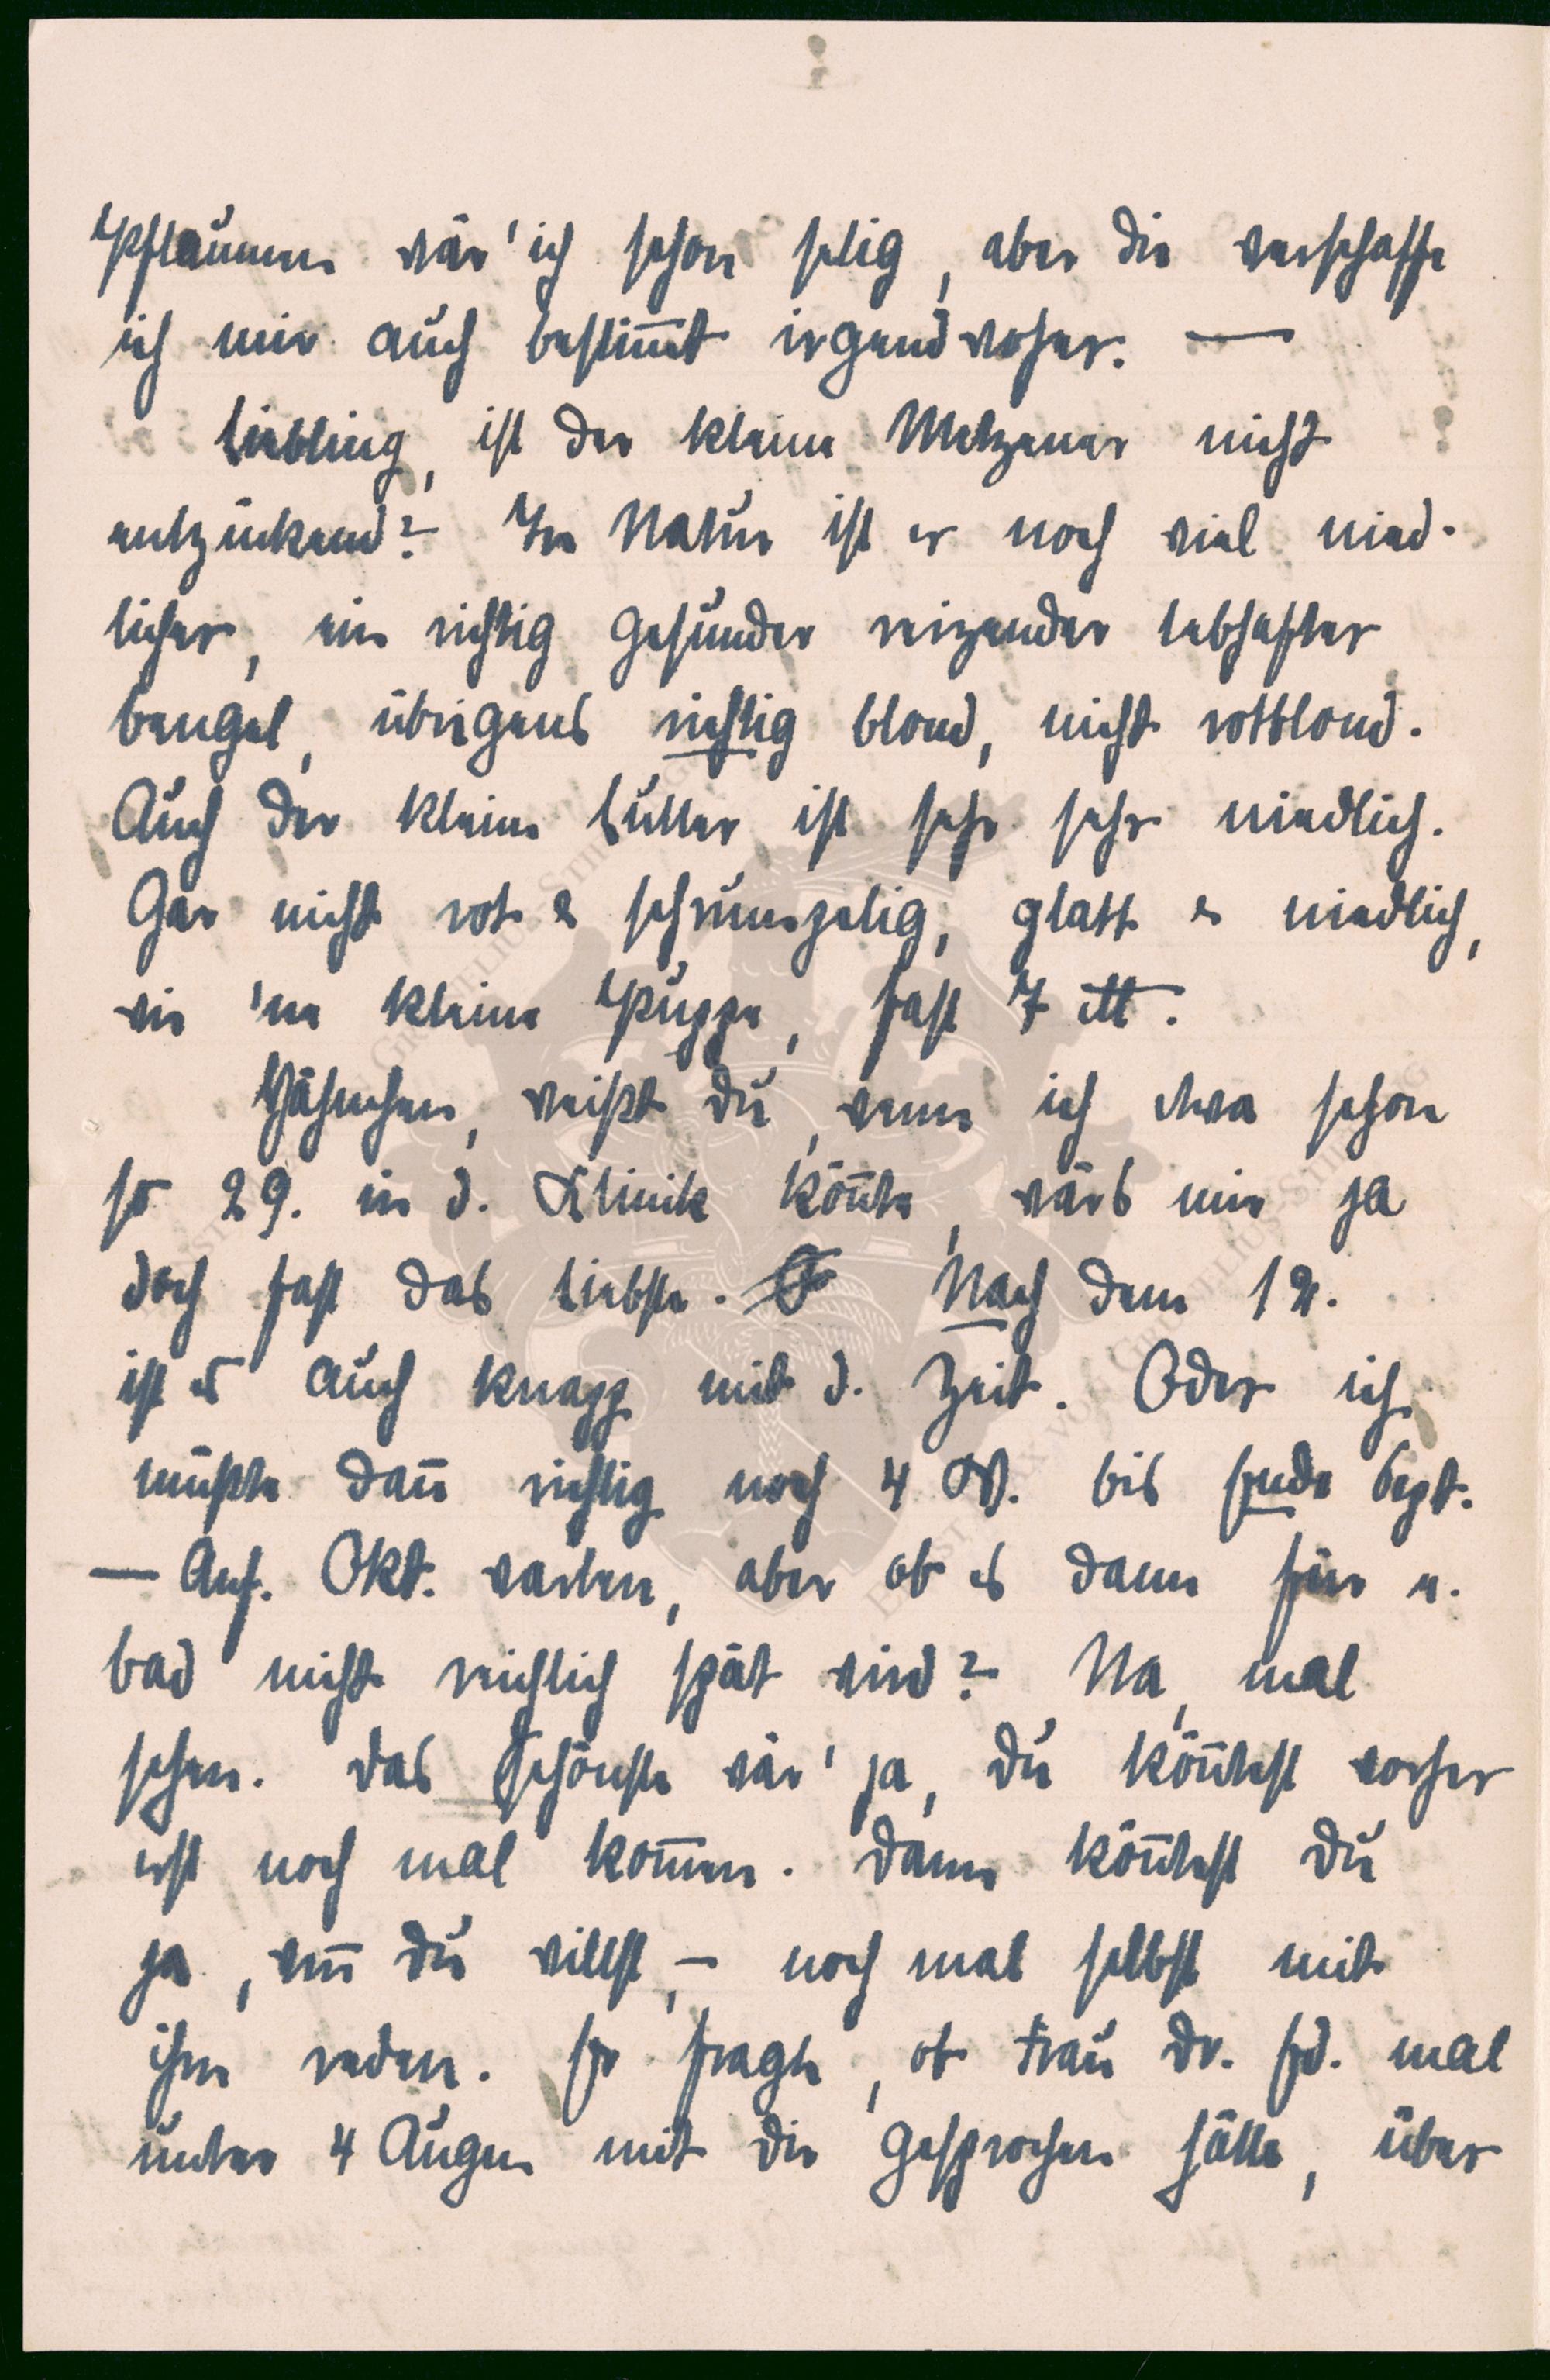 Pflaumen wär' ich schon selig, aber die verschaffe
ich mir auch bestim̄t irgendwoher. —
Liebling, ist der kleine Metzener nicht
entzückend? In Natur ist er noch viel nied-
licher, ein richtig gesunder reizender lebhafter
Bengel, übrigens richtig blond, nicht rotblond.
Auch der kleine ist sehr sehr niedlich.
Gar nicht rot & schrumpelig, glatt & niedlich,
wie 'ne kleine Puppe, fast 7 ℔.
Häschen, weißt Du, wenn ich etwa schon
so 29. in d. Klinik kön̄te, wärs mir ja
doch fast das Liebste. Nach dem 12.
ist es auch knapp mit d. Zeit. Oder ich
müßte dan̄ richtig noch 4 W. bis Ende Sept.
— Anf. Okt. warten, aber ob es dann für n.
Bad nicht reichlich spät wird? Na, mal
sehen. Das Schönste wär' ja, Du kön̄test vorher
erst noch mal kom̄en. Dann kön̄test Du
ja, wen̄ Du willst, – noch mal selbst mit
ihm reden. Er fragte, ob Frau Dr. Ed. mal
unter 4 Augen mit Dir gesprochen hätte, über